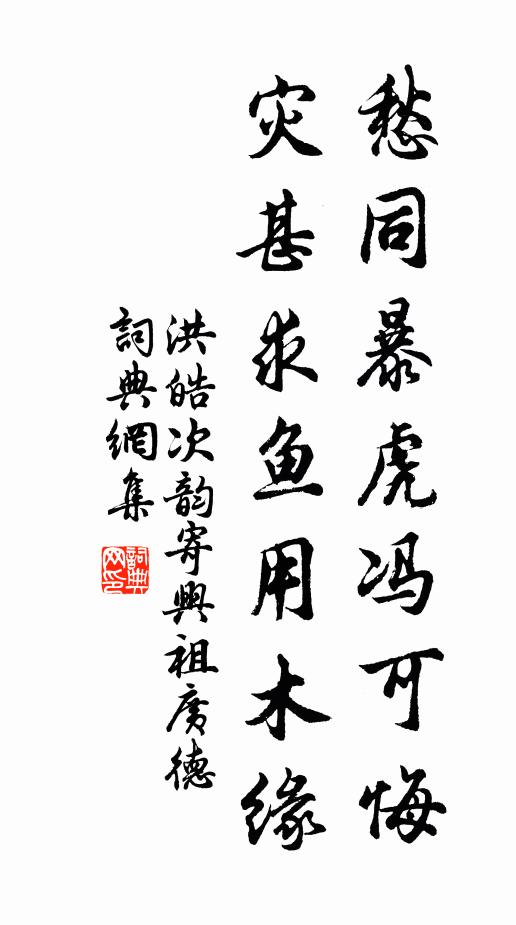 愁同暴虎冯可悔
灾甚求鱼用木缘
洪皓次韵寄興祖廣德
詞典網集
詞典网印